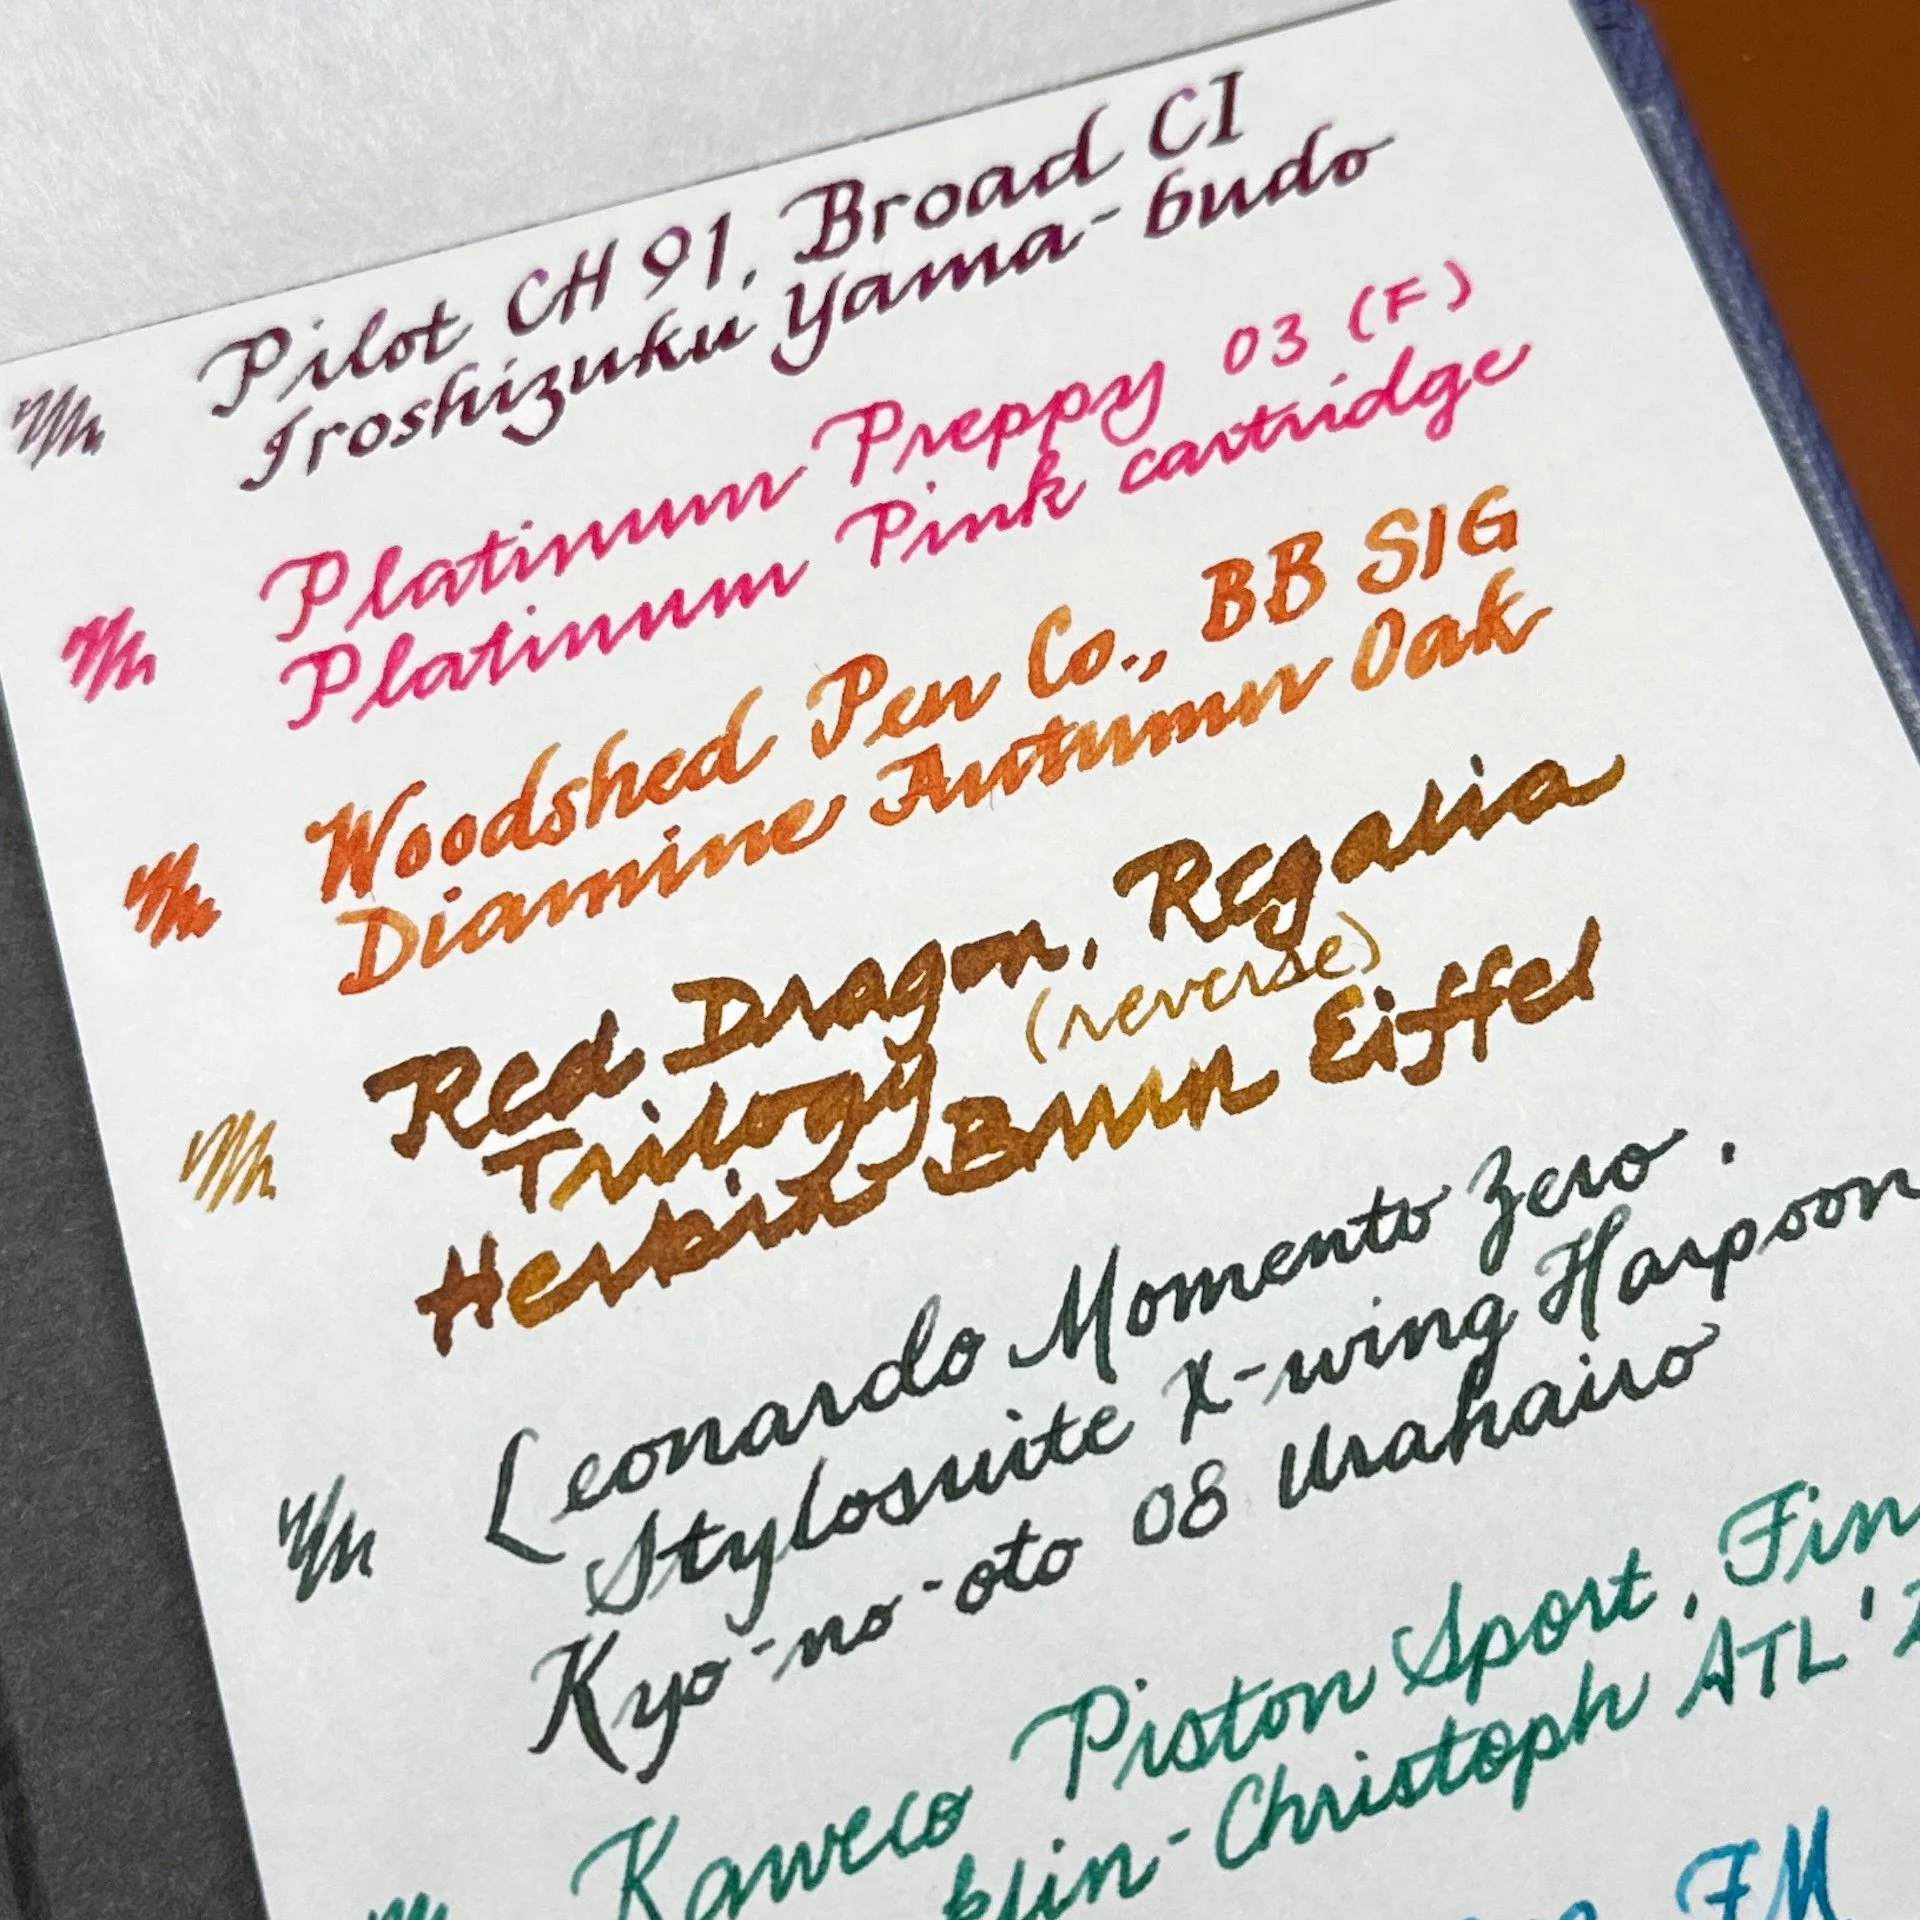 Pilot CH 91, Broad CI
Iroshizuku Yama-budo
Platinum Preppy 03 (F)
Platinum Pink cartridge
Woodshed Pen Co., BB SIG
Diamine Autumn Oak
Red Dragon, Regalia
Trilogy (reverse)
Herbin Brun Eiffel
Leonardo Momento Zero,
Stylosuite X-wing Harpoon
Kyo-no-oto 08 Urahairo
Kaweco Piston Sport, Fin
klin-Christoph ATL '2
FM